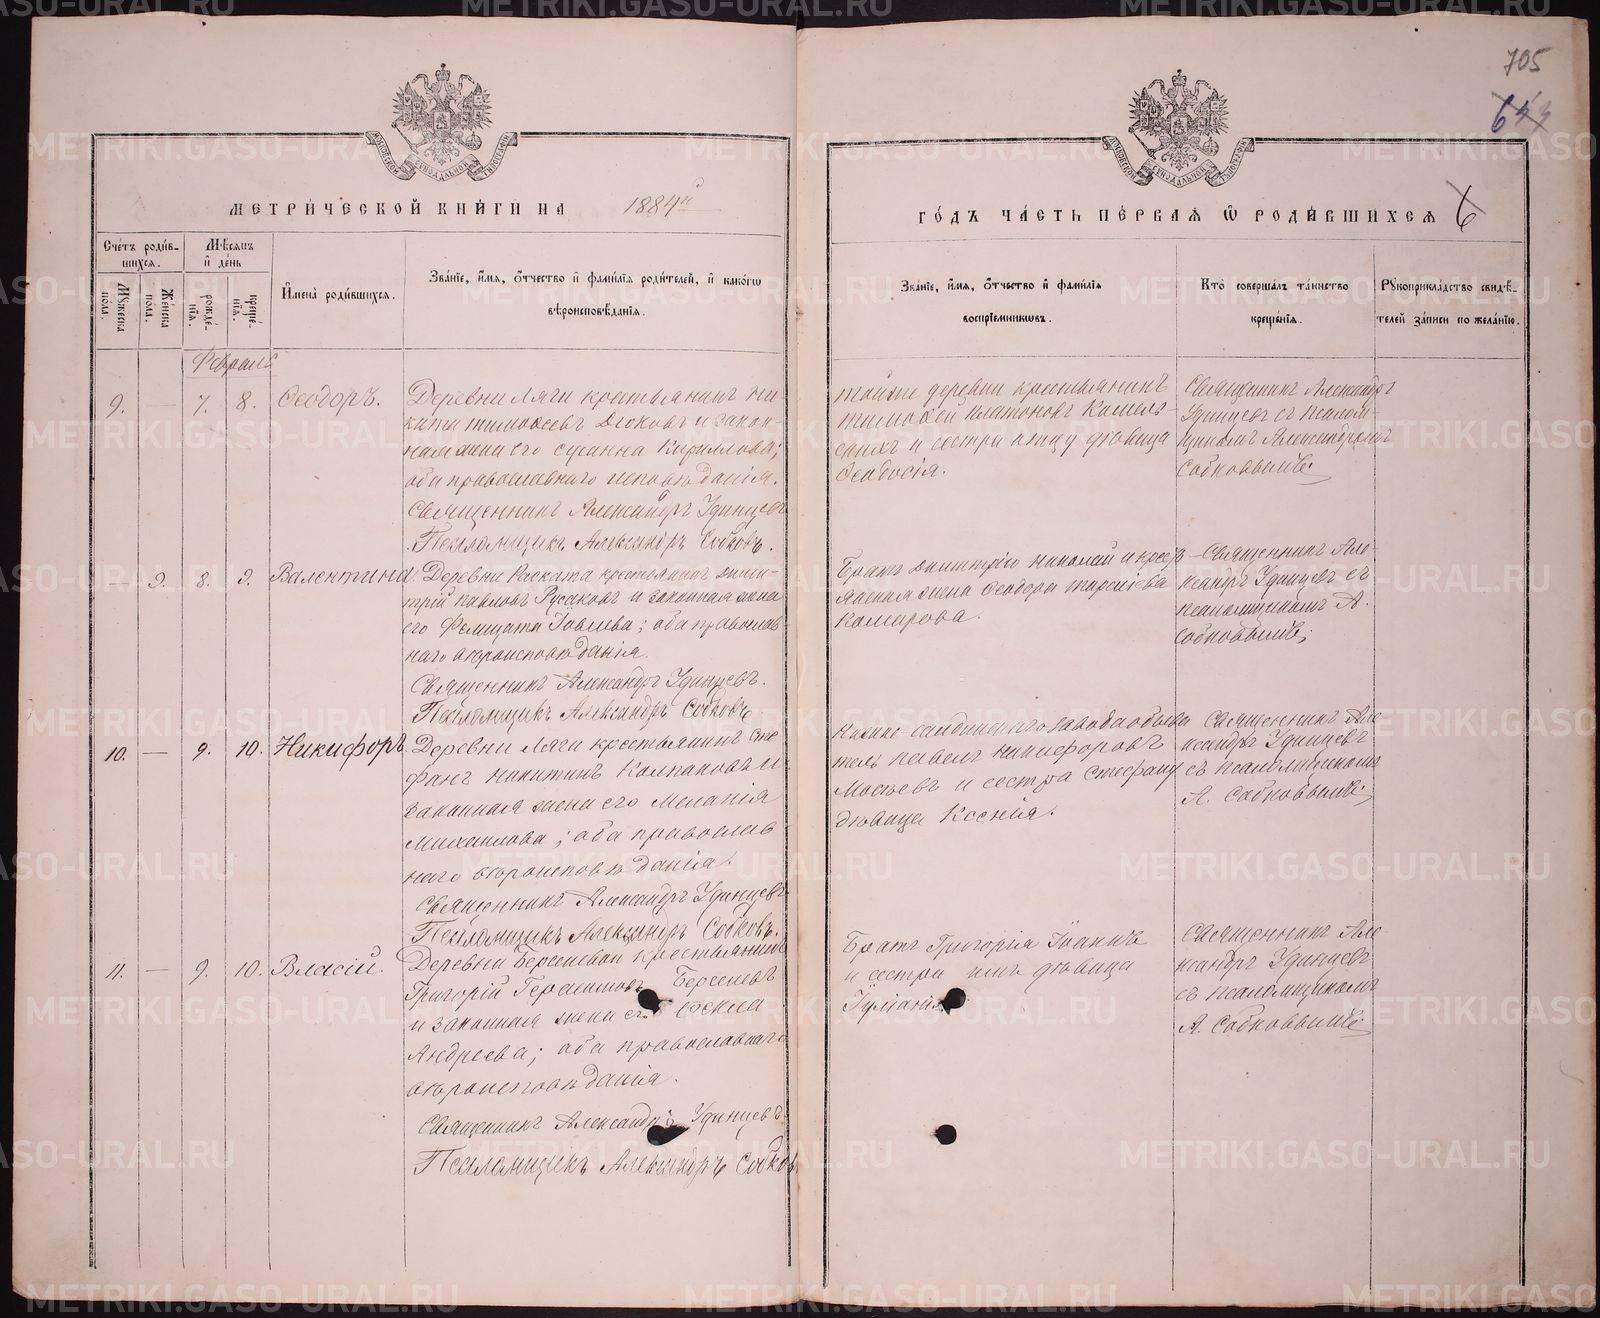 705
МЕТРИЧЕСКОЙ КНИГИ НА 1884й
ГОДЪ ЧАСТЬ ПЕРВАЯ Ѡ РОДИВШИХСЯ 6
Счетъ родив-
шихся.
Мѣсяцъ
и день
Мужеска
пола.
Женска
пола.
рожде-
нія.
креще-
нія.
Имена родившихся.
Званіе, имя, отчество и фамилія родителей, и какогѡ
вѣроисповѣданія.
Званіе, имя, отчество и фамилія
воспріемникѡвъ.
Кто совершалъ таинство
крещенія.
Рукоприкладство свидѣ-
телей записи по желанію.
Февраль
9. — 7. 8. Ѳеодоръ.
Деревни Ляги крестьянинъ Ни-
кита Тимоѳеевъ Дюковъ и закон-
ная жена его Сусанна Кириллова;
оба православнаго исповѣданія.
Священникъ Александръ Удинцевъ
Псаломщикъ Александръ Собковъ.
тойже деревни крестьянинъ
Тимоѳей Платоновъ
и сестра дѣвица
Ѳеодосія.
Священникъ Александръ
Удинцевъ съ псалом-
щикомъ Александромъ
— 9. 8. 9. Валентина
Деревни Раската крестьянинъ Дими-
трій Павловъ Русаковъ и законная жена
его Фелицата Іовлева; оба православ-
наго вѣроисповѣданія.
Священникъ Александръ Удинцевъ.
Псаломщикъ Александръ Собковъ.
Братъ Димитрія Николай и
жена Ѳеодора
Комарова.
Священникъ Але-
ксандръ Удинцевъ съ
псаломщикомъ А.
10. — 9. 10. Никифоръ
Деревни Ляги крестьянинъ Сте-
фанъ Никитинъ Колпаковъ и
законная жена его Меланія
Михаилова; оба православ
наго вѣроисповѣданія.
Священникъ Александръ Удинцевъ
Псаломщикъ Александръ Собковъ.
завода обыва
тель Павелъ Никифоровъ
и сестра Стефана
дѣвица Ксенія.
Священникъ Але-
ксандръ Удинцевъ
съ псаломщикомъ
11. — 9. 10. Власій.
Деревни Берсеневой крестьянинъ
Григорій Герасимовъ Берсеневъ
и законная жена его
Андреева; оба православнаго
вѣроисповѣданія.
Священникъ Александръ Удинцевъ
Псаломщикъ Александръ Собков
Братъ Григорія Іоаннъ
и сестра ихъ дѣвица
Священникъ Але-
ксандръ Удинцевъ
съ псаломщикомъ
METRIKI.GASO-URAL.RU